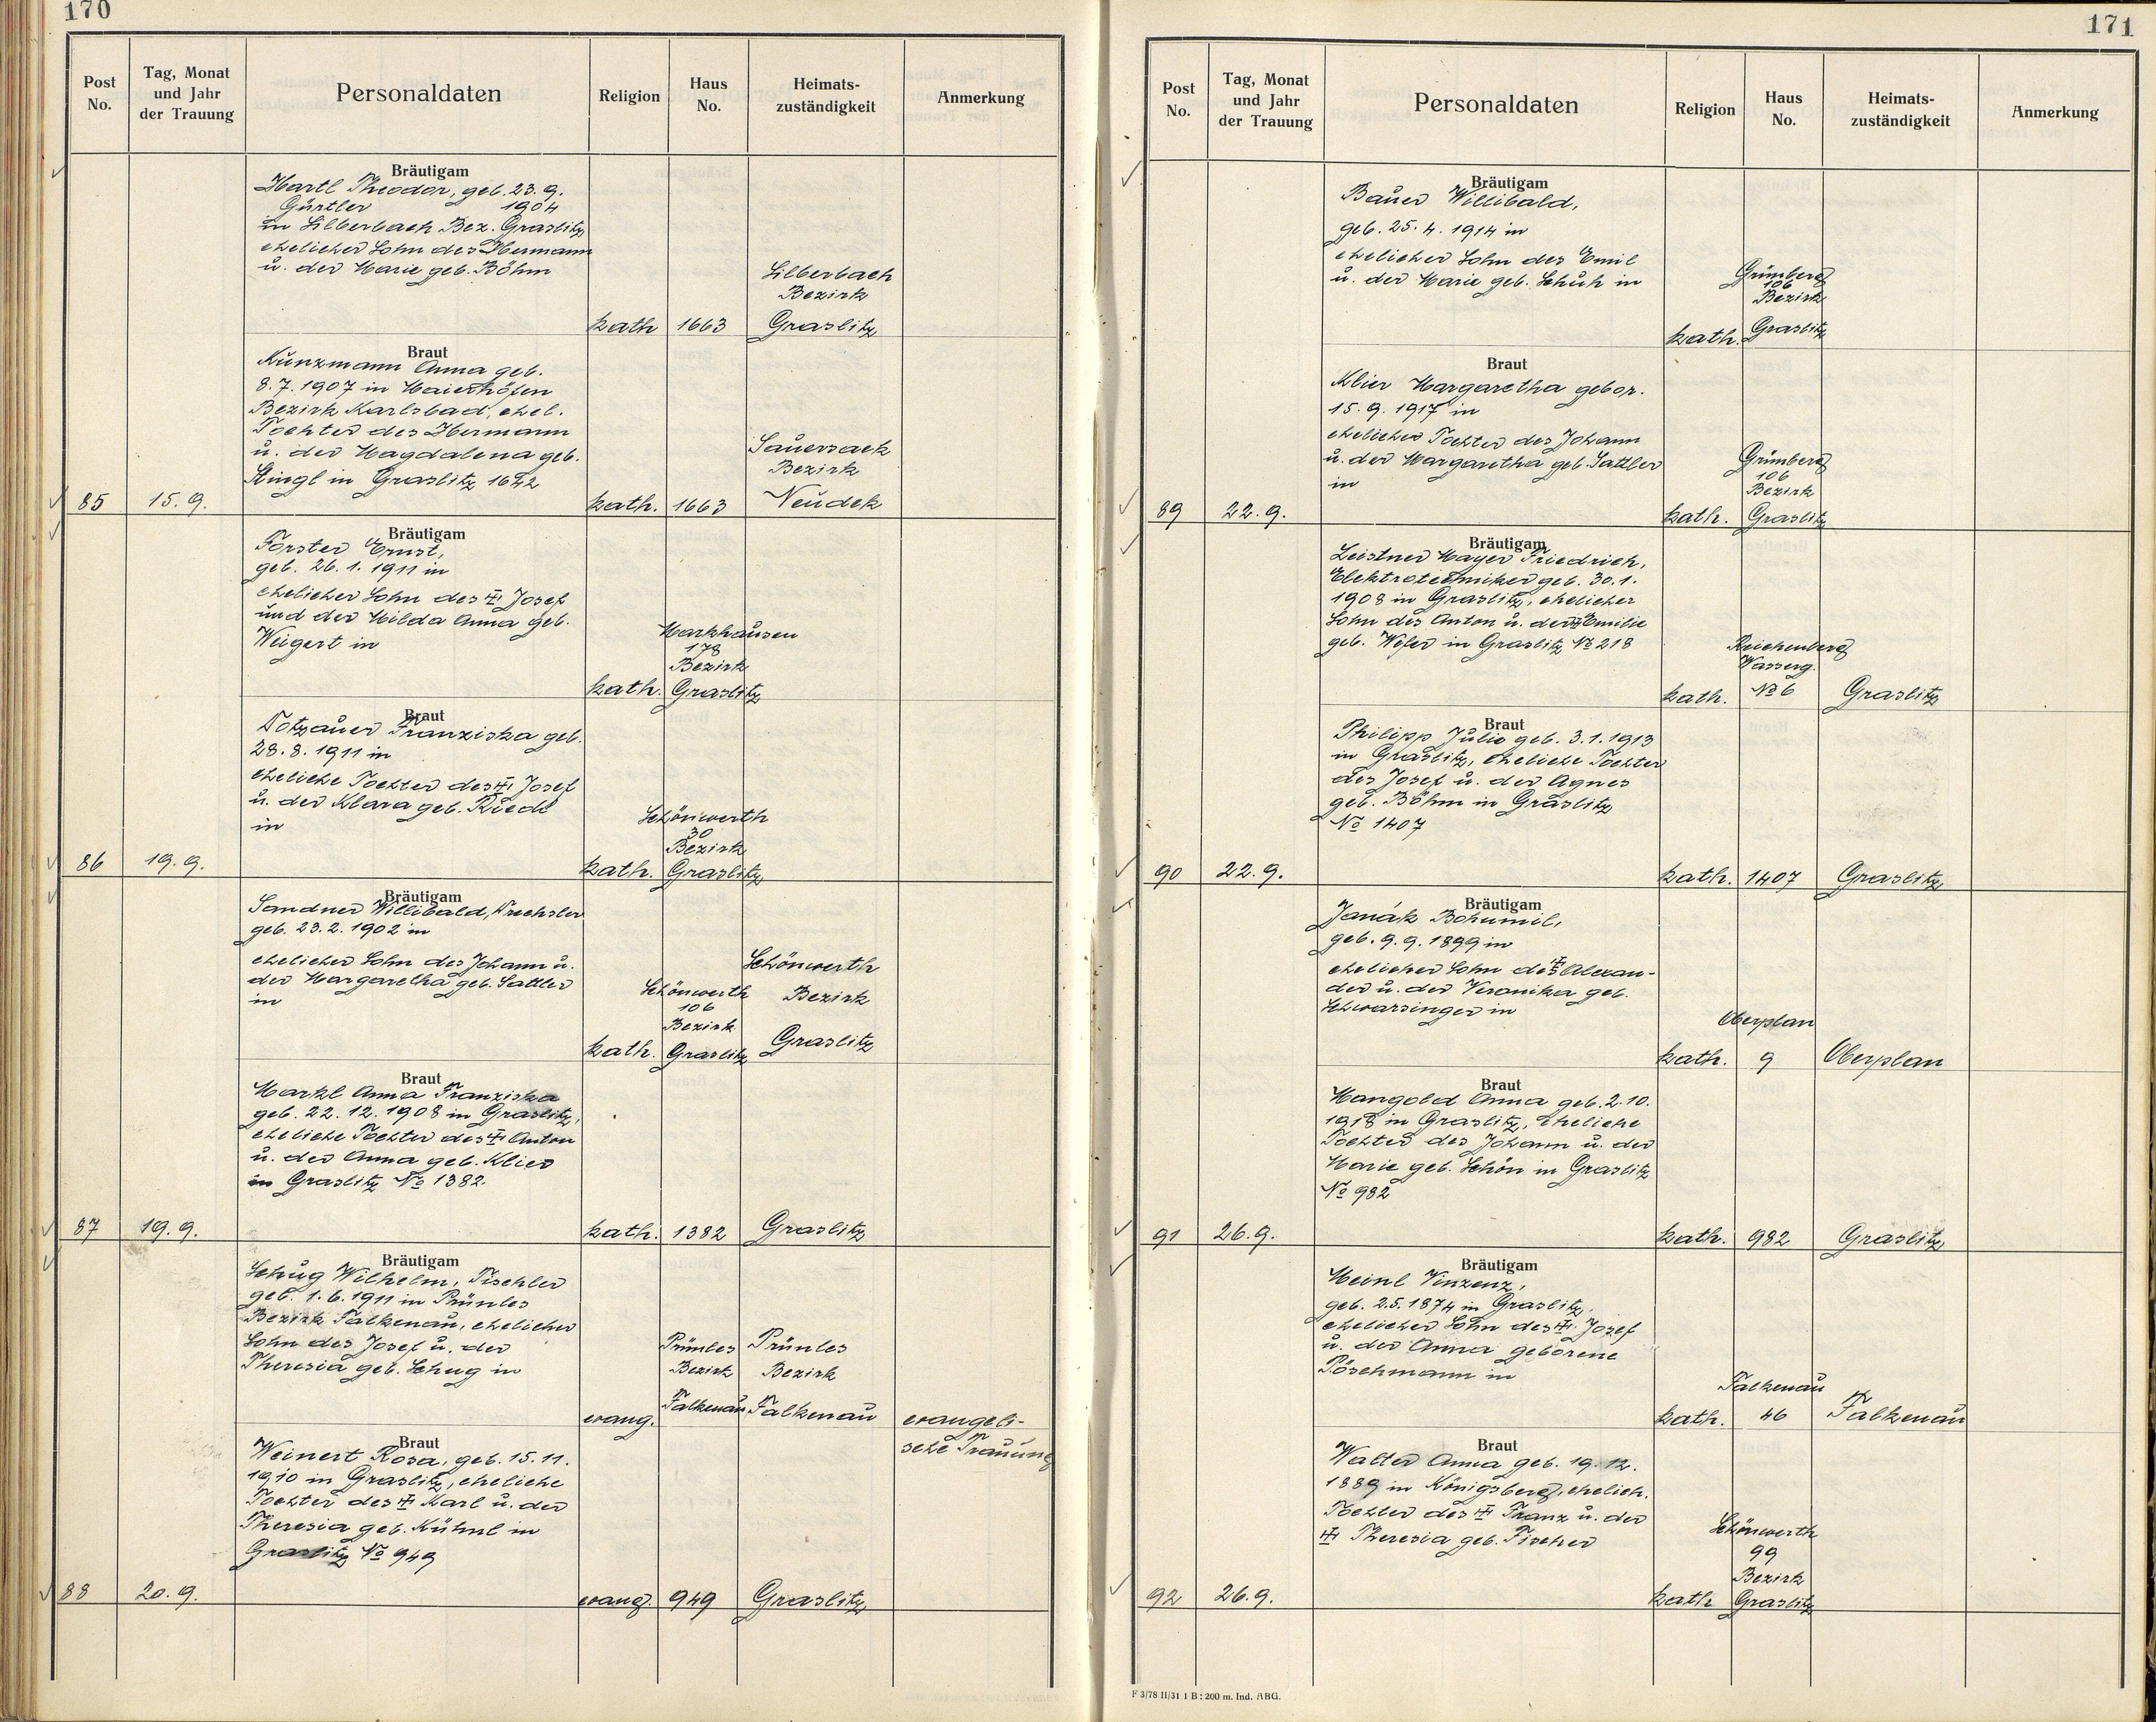 170
Post No.
Tag, Monat und Jahr der Trauung
Personaldaten
Religion
Haus No.
Heimats-zuständigkeit
Anmerkung
Bräutigam
Hartl Theodor, geb. 23. 9.
Gürtler 1904
in Silberbach Bez. Graslitz
ehelicher Sohn des Hermann
u. der Marie geb. Böhm
Silberbach
Bezirk
kath 1663 Graslitz
Braut
Kunzmann Anna geb.
8. 7. 1907 in Maierhöfen
Bezirk Karlsbad, ehel.
Tochter des Hermann
u. der Magdalena geb.
Stingl in Graslitz 1642
Sauersack
Bezirk
85 15. 9. kath. 1663 Neudek
Bräutigam
Forster Ernst,
geb. 26. 1. 1911 in
ehelicher Sohn des Josef
und der Hilda Anna geb.
Weigert in
Markhausen
178
Bezirk
kath. Graslitz
Braut
Totzauer Franziska geb.
28. 8. 1911 in
eheliche Tochter des Josef
u. der Klara geb. Riedl
in
Schönwerth
30
Bezirk
86 19. 9. kath. Graslitz
Bräutigam
Sandner Willibald, Drechsler
geb. 23. 2. 1902 in
ehelicher Sohn des Johann u.
der Margaretha geb. Sattler
in
Schönwerth
106
Bezirk
kath. Graslitz
Schönwerth
Bezirk
Graslitz
Braut
Markl Anna Franziska
geb. 22. 12. 1908 in Graslitz,
eheliche Tochter des Anton
u. der Anna geb. Klier
in Graslitz No 1382.
87 19. 9. kath. 1382 Graslitz
Bräutigam
Schug Wilhelm, Tischler
geb. 1. 6. 1911 in Prünles
Bezirk Falkenau, ehelicher
Sohn des Josef u. der
Theresia geb. Schug in
Prünles
Bezirk
Falkenau
Prünles
Bezirk
Falkenau
evang.
evangeli-
sche Trauung
Braut
Weinert Rosa, geb. 15. 11.
1910 in Graslitz, eheliche
Tochter des Karl u. der
Theresia geb. Kühnl in
Graslitz No 949
88 20. 9. evang. 949 Graslitz
171
Post No.
Tag, Monat und Jahr der Trauung
Personaldaten
Religion
Haus No.
Heimats-zuständigkeit
Anmerkung
Bräutigam
Bauer Willibald,
geb. 25. 4. 1914 in
ehelicher Sohn des Emil
u. der Marie geb. Schuh in
Grünberg
106
Bezirk
kath. Graslitz
Braut
Klier Margaretha gebor.
15. 9. 1917 in
ehelicher Tochter des Johann
u. der Margaretha geb. Sattler
in
Grünberg
106
Bezirk
89 22. 9. kath. Graslitz
Bräutigam
Leistner Mayer Friedrich,
Elektrotechniker geb. 30. 1.
1908 in Graslitz, ehelicher
Sohn des Anton u. der Emilie
geb. Wofer in Graslitz No 218
Reichenberg
Wasserg.
kath. No 6 Graslitz
Braut
Philipp Julie geb. 3. 1. 1913
in Graslitz, eheliche Tochter
des Josef u. der Agnes
geb. Böhm in Graslitz
No 1407
90 22. 9. kath. 1407 Graslitz
Bräutigam
Janák Bohumil,
geb. 9. 9. 1899 in
ehelicher Sohn des Alexan-
der u. der Veronika geb.
Schwarsinger in
Oberplan
kath. 9 Oberplan
Braut
Mangold Anna geb. 2. 10.
1918 in Graslitz, eheliche
Tochter des Johann u. der
Marie geb. Schön in Graslitz
No 982
91 26. 9. kath. 982 Graslitz
Bräutigam
Heinl Vinzenz,
geb. 2. 5. 1874 in Graslitz,
ehelicher Sohn des Josef
u. der Anna geborene
Pöschmann in
Falkenau
kath. 46 Falkenau
Braut
Walter Anna geb. 19. 12.
1889 in Königsberg, ehelich.
Tochter des Franz u. der
Theresia geb. Fischer
Schönwerth
99
Bezirk
92 26. 9. kath Graslitz
F 3/78 II/31 1 B : 200 m. Ind. ABG.